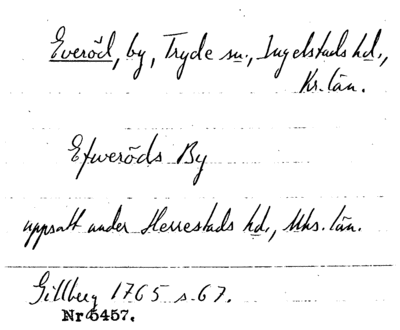 Everöd, by, Tryde sn., Ingelstads hd.,
Kr. län.
Efweröds By
uppsatt under Herrestads hd., Mhs. län.
Gillberg 1765 s. 67.
Nr 5457.